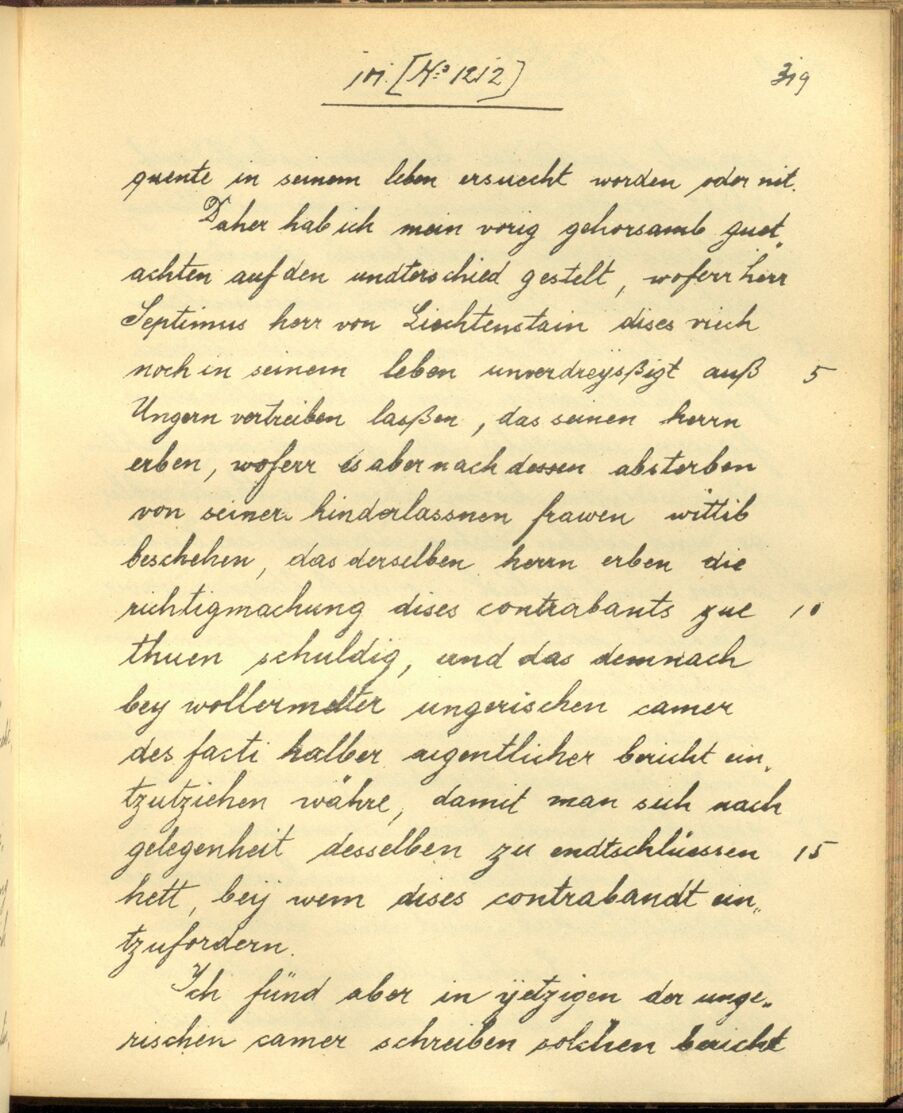 [No 1212]
319
quente in seinem leben ersuecht worden oder nit.
Daher hab ich mein vorig gehorsamb guet„
achten auf den undterschied gestelt, woferr herr
Septimus herr von Liechtenstain dises viech
noch in seinem leben unverdreyßigt auß 5
Ungern vertreiben laßen, das seinen herrn
erben, woferr es aber nach dessen absterben
von seiner hinderlassnen frawen wittib
beschehen, das derselben herrn erben die
richtigmachung dises contrabants zue 10
thuen schuldig, und das demnach
bey wollermelter ungerischen camer
des facti halber aigentlicher bericht ein„
tzutziehen währe, damit man sich nach
gelegenheit desselben zu endtschlüessen 15
hett, beij wem dises contrabandt ein„
tzufordern.
Ich fünd aber in ijetzigen der unge„
rischen camer schreiben solchen bericht